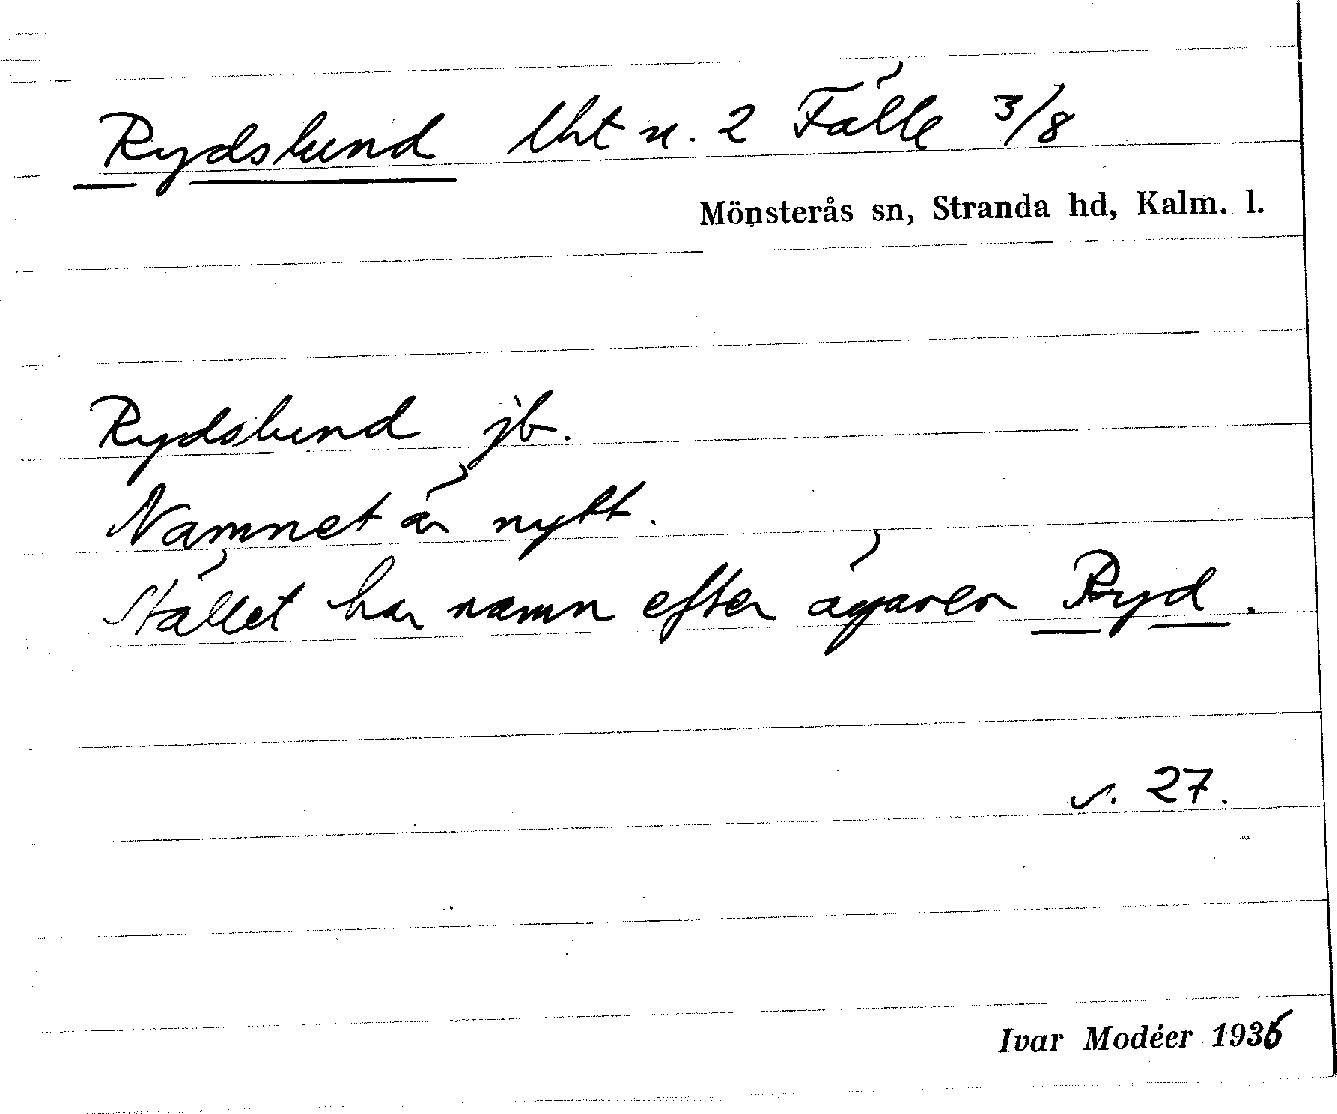 Rydslund lht n. 2 Fälle 3/8
Mönsterås sn, Stranda hd, Kalm. l.
Rydslund jb.
Namnet är nytt.
Stället har namn efter ägaren Ryd.
s. 27.
Ivar Modéer 1936